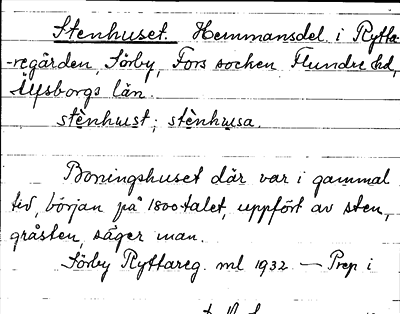 Stenhuset. Hemmansdel i Rytta-
-regården, Sörby, Fors socken Flundre hd,
Älfsborgs län.
stènhust; stènhusa.
Boningshuset där var i gammal
tid, början på 1800talet, uppfört av sten,
gråsten, säger man.
Sörby Ryttareg. ml 1932 — Prep i